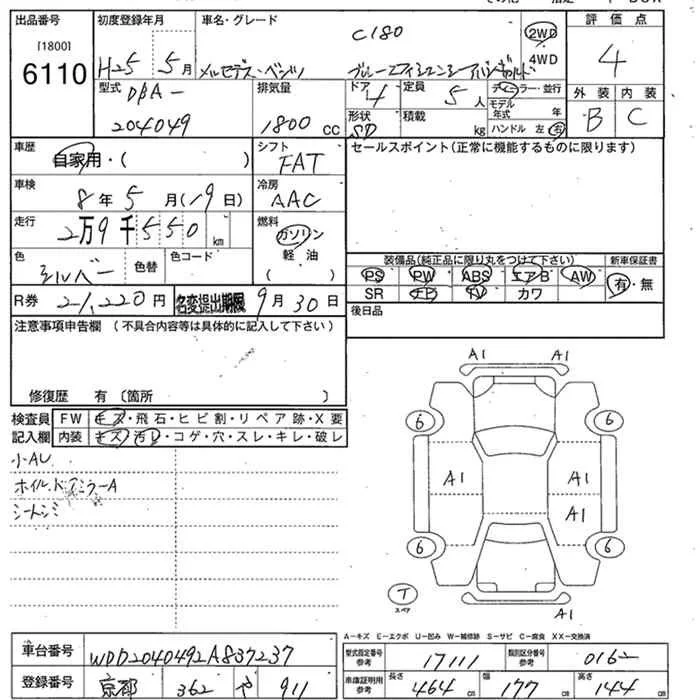 出品番号 初度登録年月 車名・グレード 評価点
[1800]
6110
H25年 5月 C180 2WD 4
メルセデス・ベンツ 4WD
型式 排気量 ドア 定員 ディーラー・並行 外装 内装
DBA- 4 5人 モデル年式 年
204049 1800cc 形状 積載 kg ハンドル 左 右 B C
SD
車歴 シフト セールスポイント(正常に機能するものに限ります)
自家用・( ) FAT
車検 冷房
8年5月(19日) AAC
走行 燃料
2万9千550km ガソリン
色 色替 色コード 軽油 装備品(純正品に限り丸をつけて下さい) 新車保証書
シルバー ( ) PS PW ABS エアB AW 有・無
R券 21,220円 名変提出期限 9月30日 SR ナビ TV カワ
注意事項申告欄 (不具合内容等は具体的に記入して下さい) 後日品
修復歴 有〔箇所 〕
検査員 FW キズ・飛石・ヒビ割・リペア跡・X要
記入欄 内装 キズ・汚レ・コゲ・穴・スレ・キレ・破レ
小AU
ホイル.ドアミラーA
シートシミ
A1 A1
6 6
A1 A1
A1
6 6
T
スペア
A1
A-キズ E-エクボ U-凹み W-補修跡 S-サビ C-腐食 XX-交換済
車台番号 WDD2040492A837237 型式指定番号 参考 17111 類別区分番号 参考 0162
登録番号 京都 362 911 車庫証明用 参考 長さ 464cm 幅 177cm 高さ 144cm